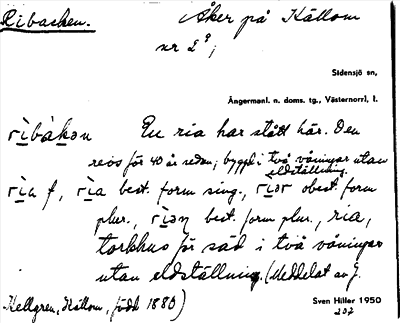 Ribacken. Åker på Källom
nr 2 ;
Sidensjö sn,
Ångermanl. n. doms. tg., Västernorrl. l.
rìbàkən En ria har stått här. Den
revs för 40 år sedan; byggd i två våningar utan
eldställning.
rìa f, rìa best. form sing., rìər obest. form
plur., rìəɳ best. form plur., ria,
torkhus för säd i två våningar
utan eldställning. (Meddelat av J.
Kellgren, Källom, född 1880)
Sven Hiller 1950
207